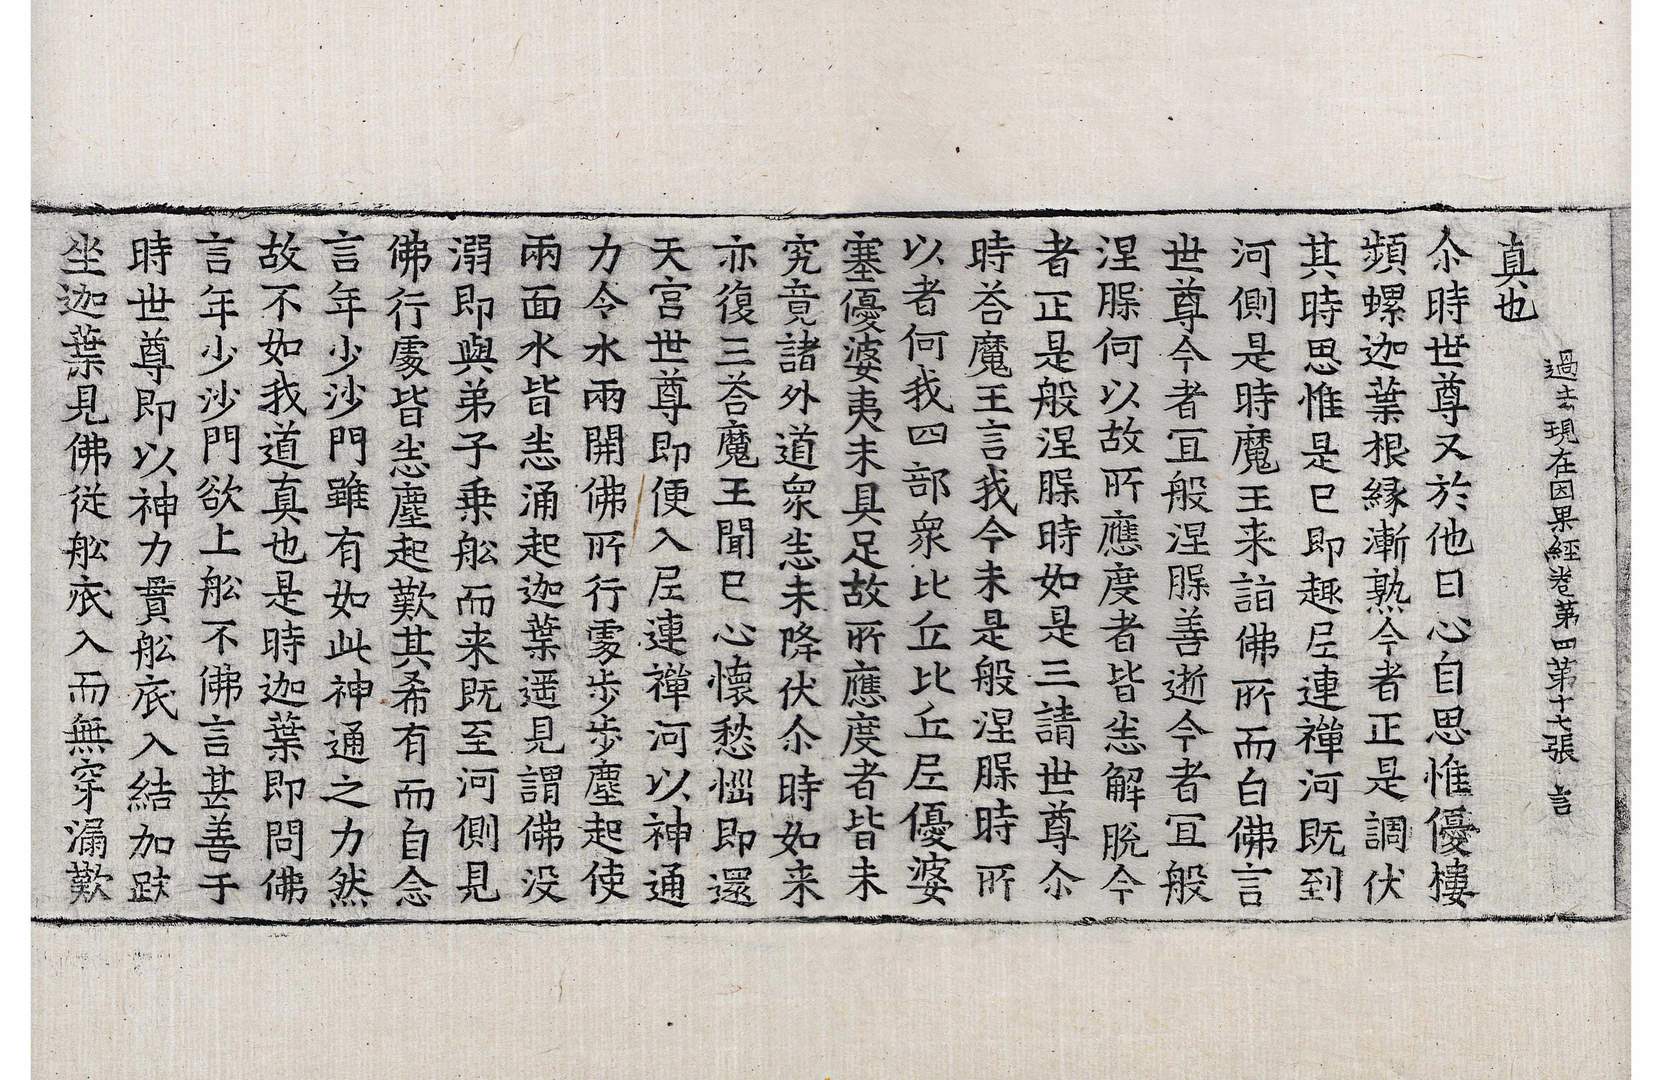 過去現在因果經卷第四第十七張 言
真也
尒時世尊又於他日心自思惟優樓
頻螺迦葉根緣漸熟今者正是調伏
其時思惟是已即趣尼連禪河既到
河側是時魔王来詣佛所而白佛言
世尊今者冝般涅䏶善逝今者冝般
涅䏶何以故所應度者皆悉解脫今
者正是般涅䏶時如是三請世尊尒
時荅魔王言我今未是般涅䏶時所
以者何我四部衆比丘比丘尼優婆
塞優婆夷未具足故所應度者皆未
究竟諸外道衆悉未降伏尒時如来
亦復三荅魔王聞已心懷愁惱即還
天宮世尊即便入尼連禪河以神通
力令水兩開佛所行處步步塵起使
兩面水皆悉涌起迦葉遥見謂佛没
溺即與弟子乗舩而来既至河側見
佛行處皆悉塵起歎其希有而自念
言年少沙門雖有如此神通之力然
故不如我道真也是時迦葉即問佛
言年少沙門欲上舩不佛言甚善于
時世尊即以神力貫舩底入結加趺
坐迦葉見佛從舩底入而無穿漏歎